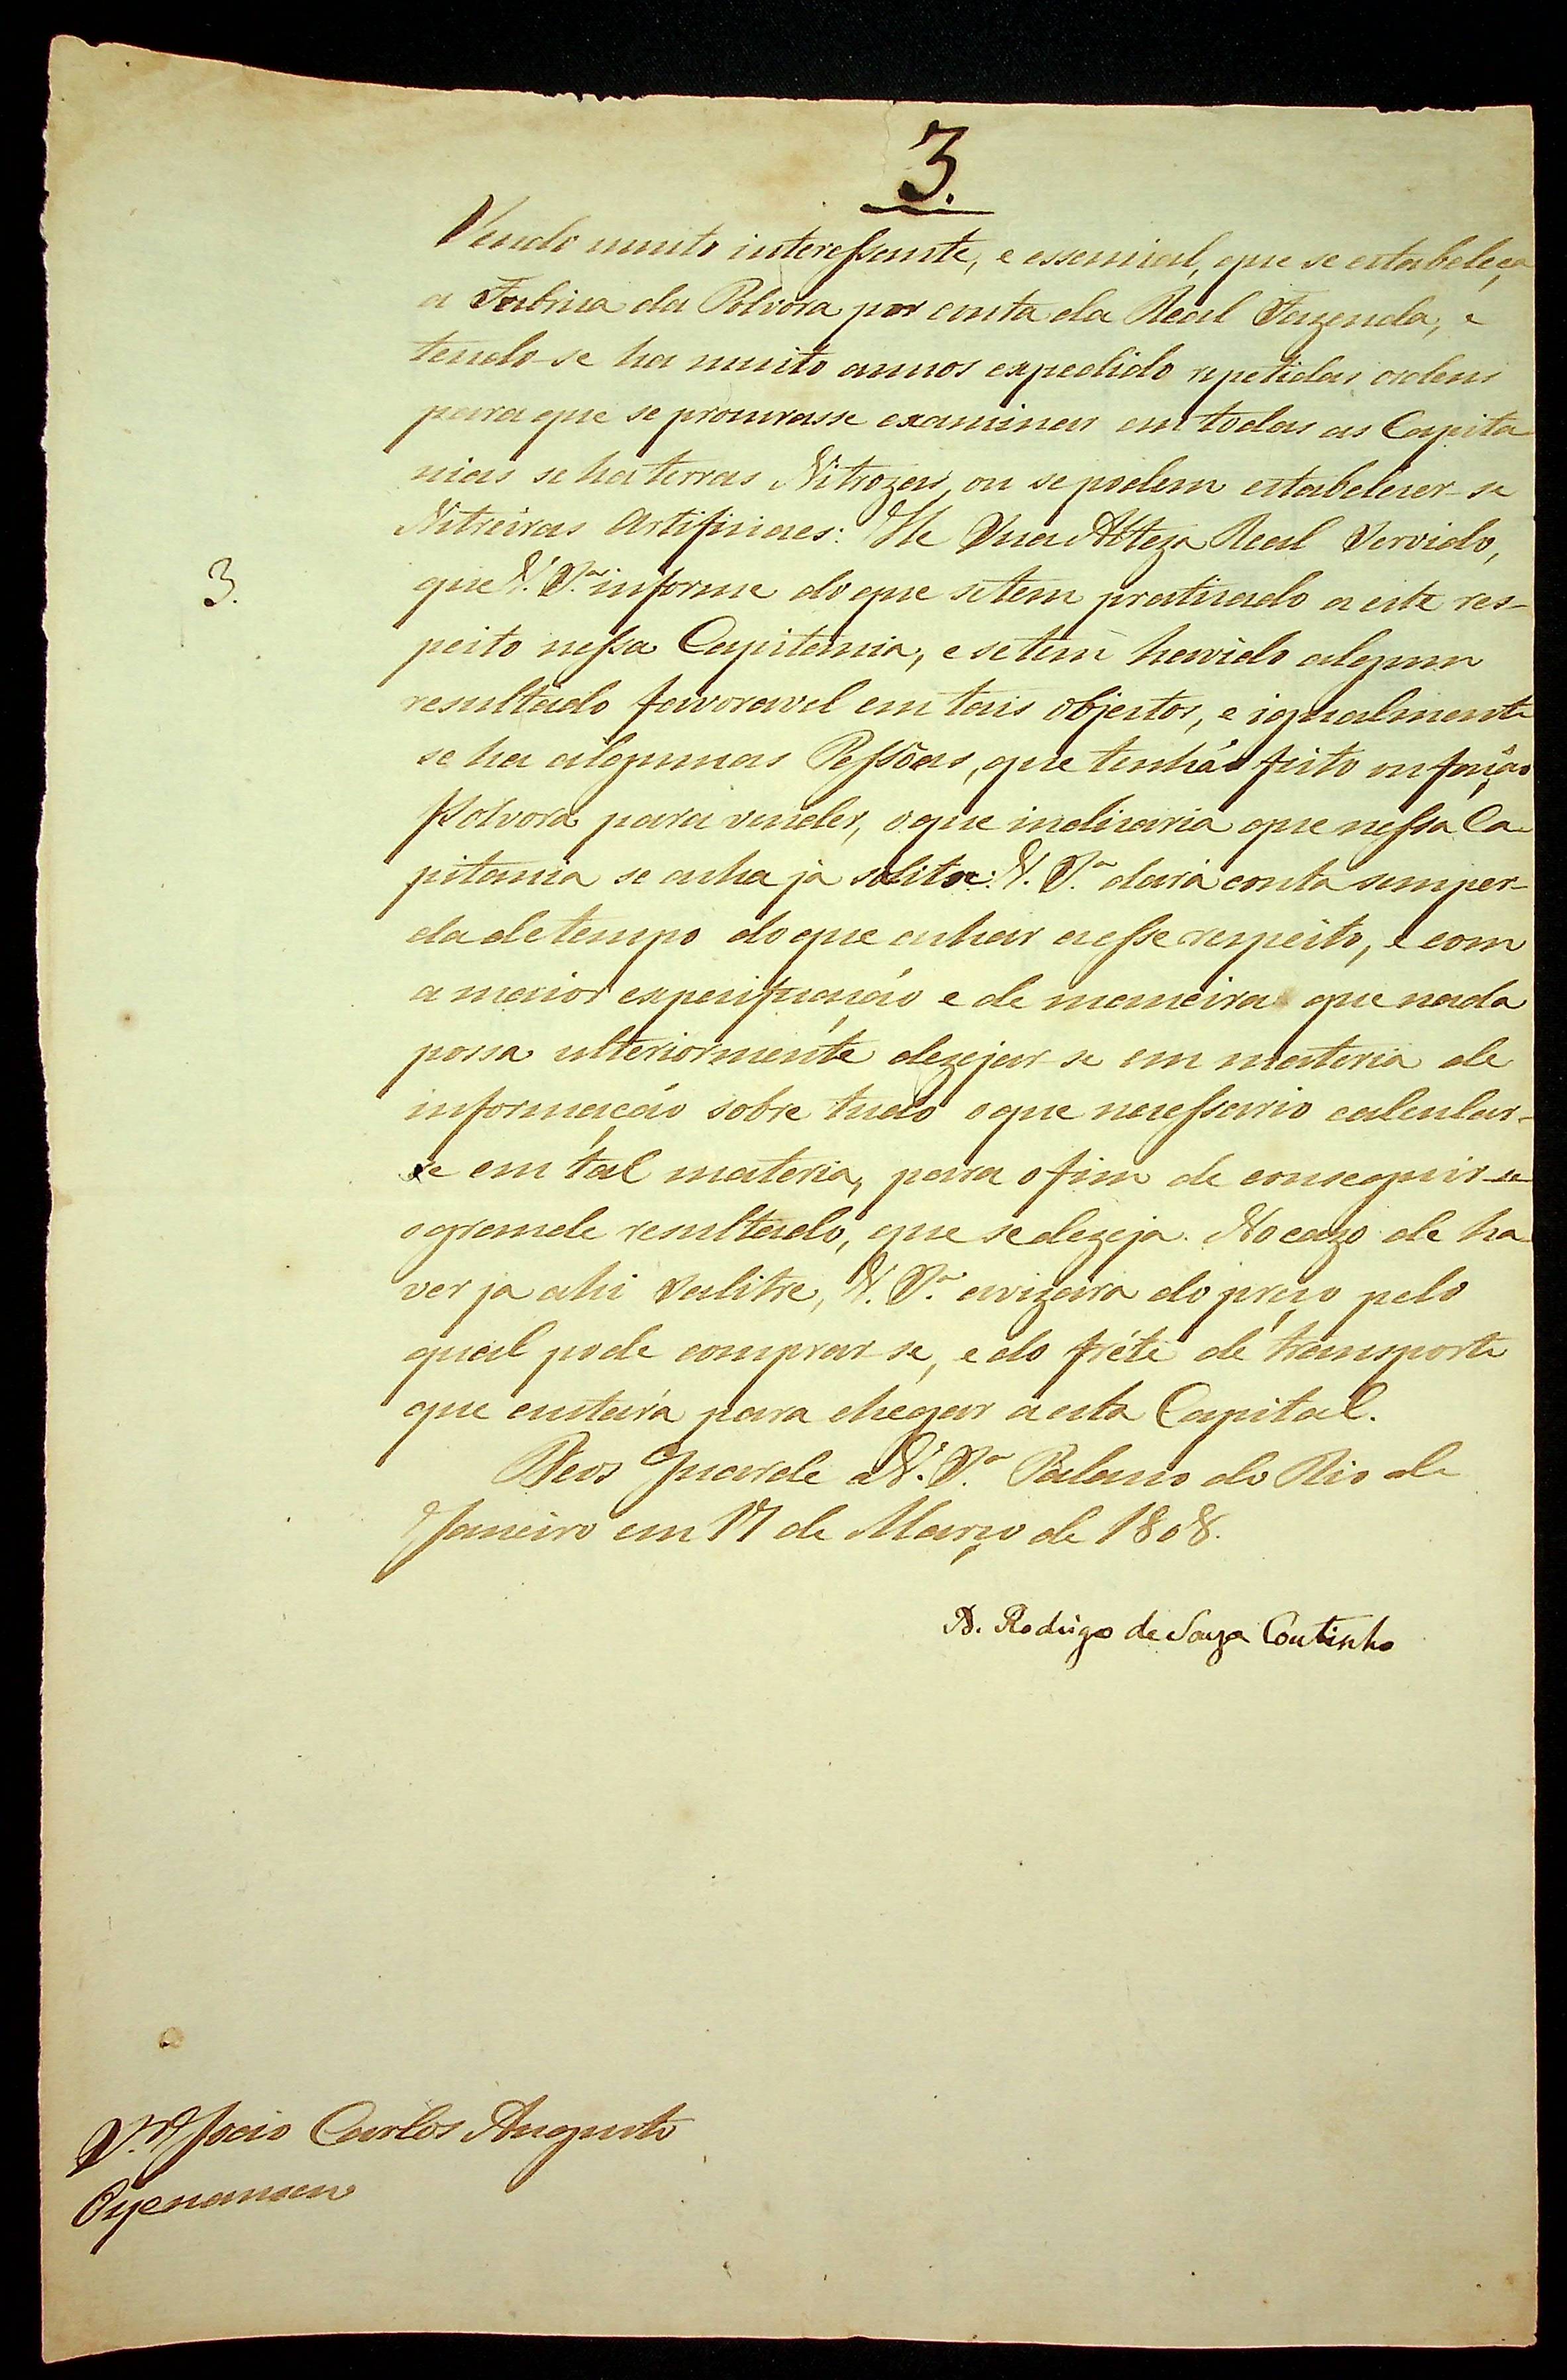 3.
Sendo muito interessante, e essencial, que se estabeleça
a Fabrica da Polvora por conta da Real Fazenda, e
tendo-se ha muito annos expedido repetidas ordens
para que se procurasse examinar em todas as Capita
nias se ha terras Nitrozas, ou se podem estabelecer-se
Nitreiras Artificiaes: He Sua Alteza Real Servido,
3.
que V. S.ª informe do que se tem praticado a este res-
peito nessa Capitania, e se tem havido algum
resultado favoravel em tais objectos, e igualmente
se ha algumas Pessôas, que tenháo feito ou façáo
Polvora para vender, o que indicaria que nessa Ca-
pitania se acha já salitre: V. S.ª dará conta sem per-
da de tempo do que achar a esse respeito, e com
a maior especificaçáo e de maneira que nada
possa ulteriormente dezejar-se em materia de
informaçáo sobre tudo o que necessario calcular-
se em tal materia, para o fim de conseguir-se
o grande resultado, que se dezeja. No cazo de ha
ver ja ahi Salitre, V. S.ª avizara do preço pelo
qual pode comprar-se, e do fréte de transporte
que custará para chegar a esta Capital.
Deos Guarde a V. S.ª Palacio do Rio de
Janeiro em 17 de Março de 1808.
D. Rodrigo de Souza Coutinho
S.r Joáo Carlos Augusto
Oyenausen